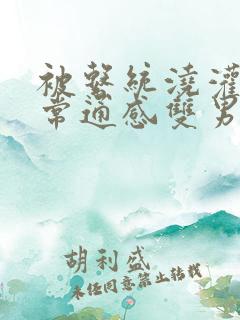 被繫統澆灌
常通感雙男
胡利盛
未經同意禁止轉載